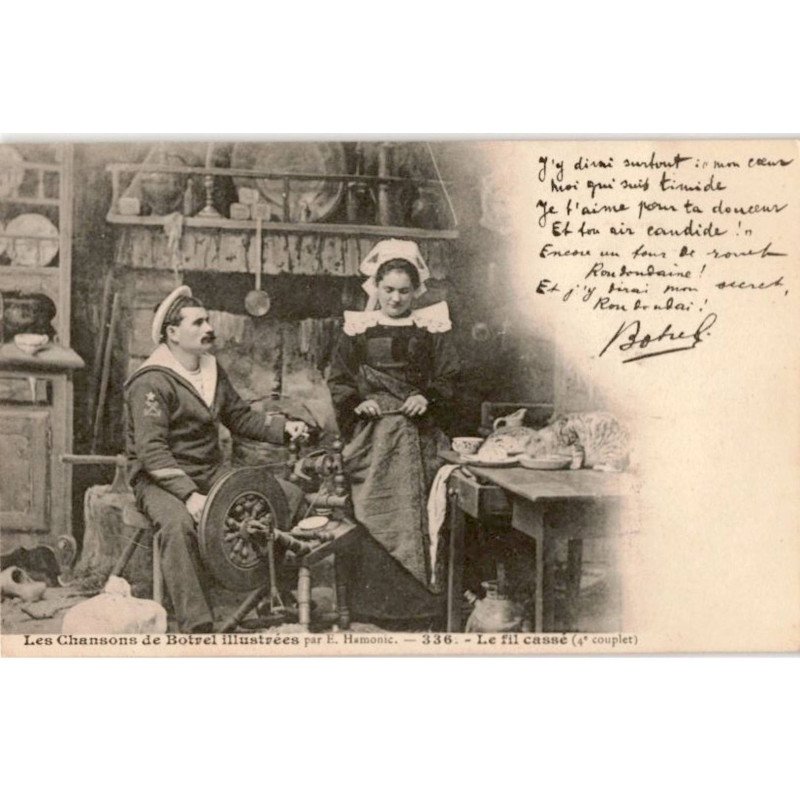 J'y dirai surtout : « mon cœur
Moi qui suis timide
Je t'aime pour ta douceur
Et ton air candide ! »
Encore un tour de rouet
Roudoudaine !
Et j'y dirai mon secret,
Roudoudai !
Botrel.
Les Chansons de Botrel illustrées par E. Hamonic. — 336. - Le fil cassé (4e couplet)